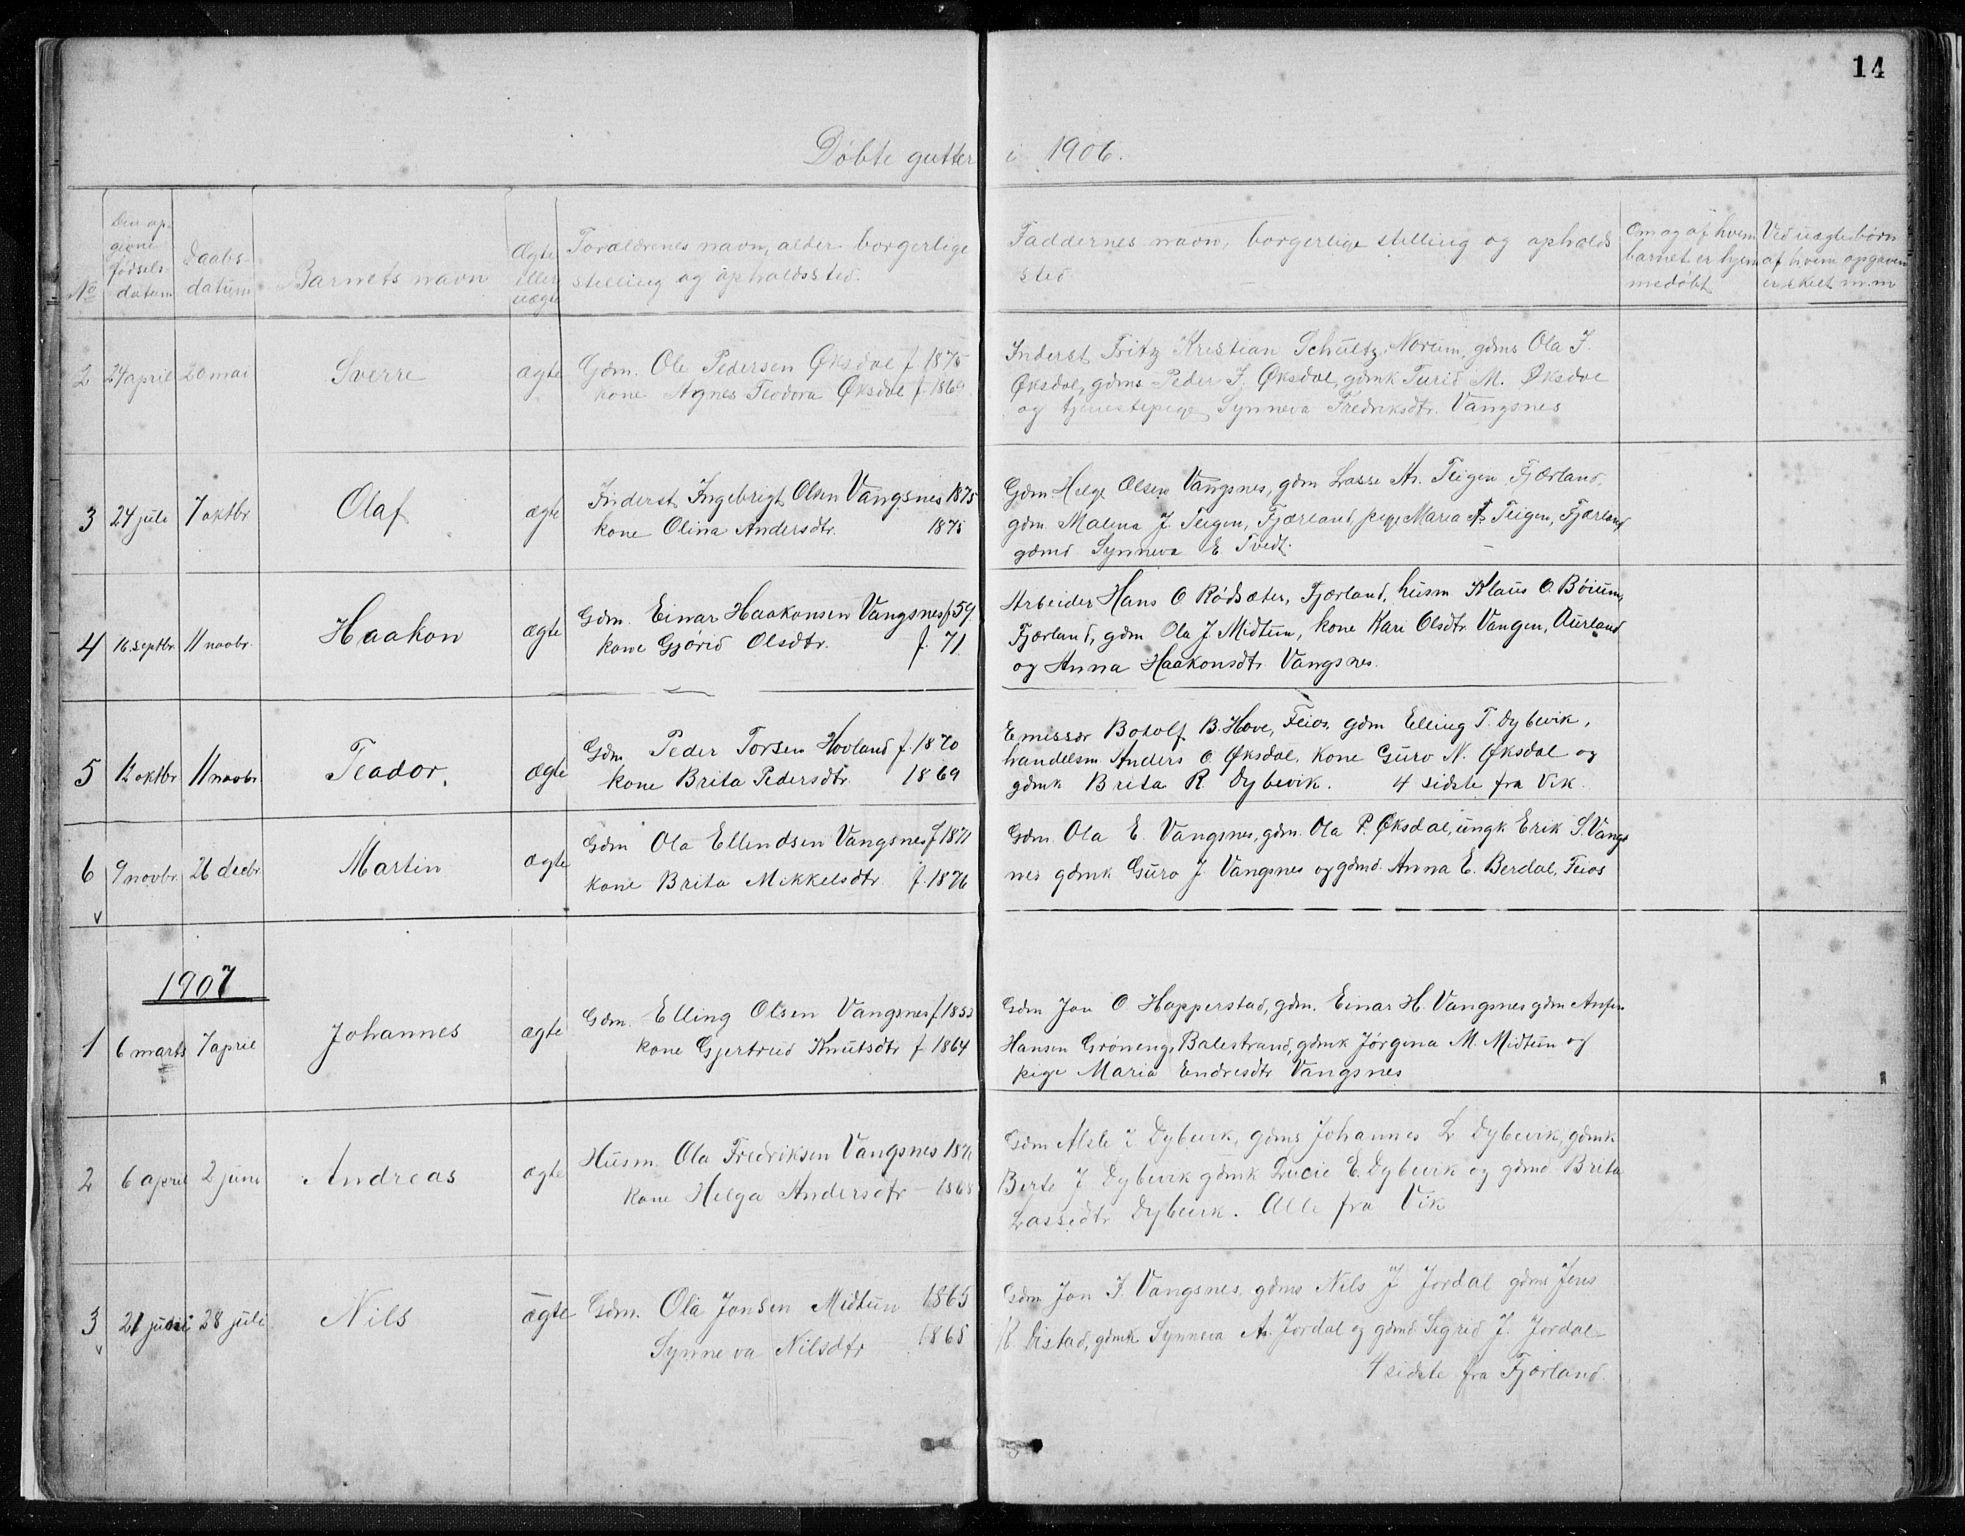 14
Døbte gutter i 1906.
No
Den op-
givne
fødsels-
datum
Daabs-
datum
Barnets navn
Ægte
eller
uægte
Forældrenes navn, alder borgerlige
stilling og opholdssted.
Faddernes navn, borgerlige stilling og opholds
sted
Om og af hvem
barnet er hjem
medøbt
Ved uægte børn
af hvem opgaven
er skeet m.m
2 24 april 20 mai Sverre ægte
Gdm. Ole Pedersen Øksdal f 1875
kone Agnes Teodora Øksdal f. 1869
Inderst Fritz Kristian Schultz, Norum, gdms Ola J.
Øksdal, gdms Peder J. Øksdal, gdmk Turid M. Øksdal
og tjenestepige Synneva Fredriksdtr. Vangsnes
3 24 juli 7 oktbr Olaf ægte
Inderst Ingebrigt Olsen Vangsnes 1875
kone Olina Andersdtr. 1875
Gdm. Helge Olsen Vangsnes, gdm Lasse An. Teigen Fjærland,
gdm. Malena J. Teigen, Fjærland, pige Maria A Teigen, Fjærland
gdmd Synneva E Tvedt.
4 16. septbr. 11 novbr. Haakon ægte
Gdm. Einar Haakonsen Vangsnes f 59
kone Gjørid Olsdtr. f. 71
Arbeider Hans O Rødsæter, Fjærland, husm Klaus O. Bøium,
Fjærland, gdm Ola J Midtun, kone Kari Olsdtr Vangen, Aurland
og Anna Haakonsdtr Vangsnes.
5 12 oktbr 11 novbr Teodor. ægte
Gdm. Peder Torsen Hovland f. 1870
kone Brita Pedersdtr. 1869
Emissær Botolf B. Hove, Feios, gdm Elling T. Dybevik,
handelsm Anders O Øksdal, kone Guro N. Øksdal og
gdmk Brita R. Dybevik. 4 sidste fra Vik.
6 9 novbr. 26 decbr Martin ægte
Gdm Ola Ellendsen Vangsnes f 1871
kone Brita Mikkelsdtr. f. 1876
Gdm. Ola E. Vangsnes, gdm. Ola P. Øksdal, ungk Erik S. Vangs
nes gdmk Guro J. Vangsnes og gdmd. Anna E. Berdal, Feios
1907
1 6 marts 7 april Johannes ægte
Gdm. Elling Olsen Vangsnes f 1853
kone Gjertrud Knutsdtr f 1864
Gdm Jon O Hopperstad, gdm. Einar H. Vangsnes gdm Anfin
Hansen Grøneng, Balestrand, gdmk Jørgina M. Midtun og
pige Maria Endresdtr Vangsnes
2 6 april 2 juni Andreas ægte
Husm. Ola Fredriksen Vangsnes
kone Helga Andersdtr - 1868
Gdm Atle Dybevik, gdms Johannes L Dybevik, gdmk
Berte J Dybevik gdmk Lucie E. Dybevik og gdmd Brita
Lassedtr Dybevik. Alle fra Vik
3 21 juni 28 juli Nils ægte
Gdm. Ola Jonsen Midtun 1865
Synneva Nilsdtr 1865
Gdm Jon J. Vangsnes, gdms Nils J Jordal gdms Jens
R Distad, gdmk Synneva A. Jordal og gdmd Sigrid J. Jordal
4 sidste fra Fjærland.